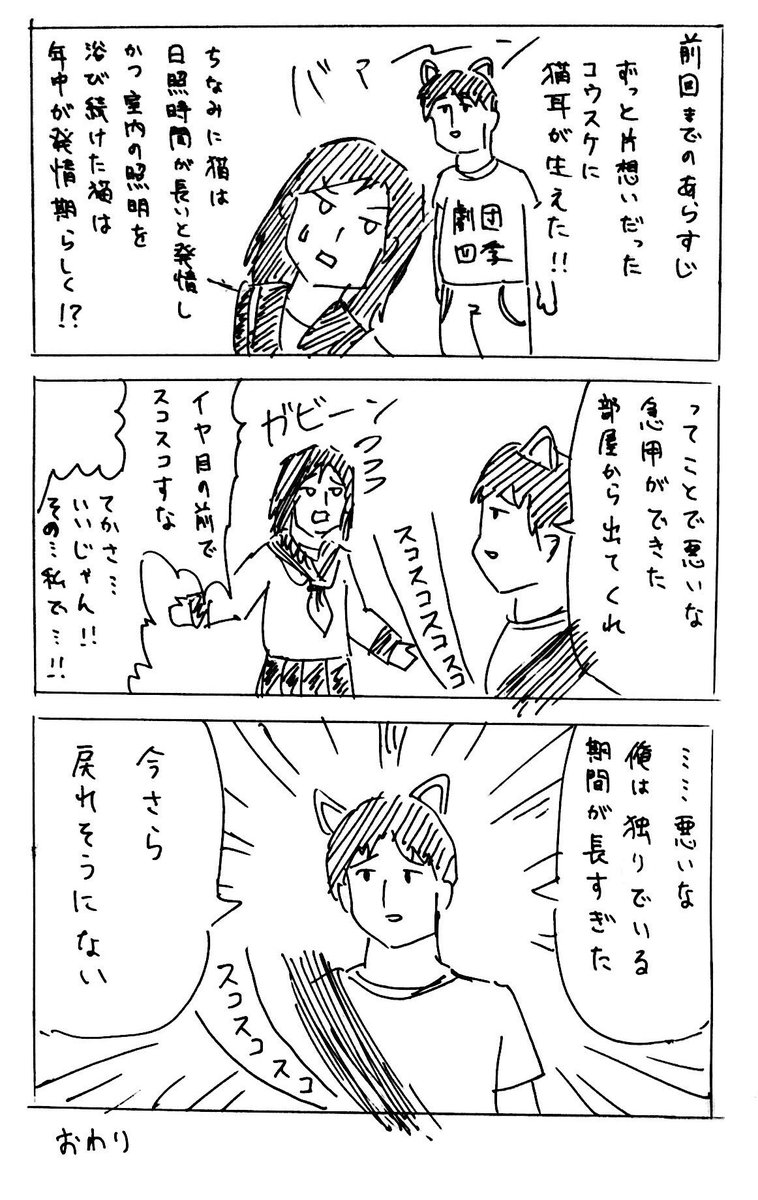 前回までのあらすじ
ずっと片想いだった
コウスケに
猫耳が生えた!!
バァーーン
劇団
四季
ちなみに猫は
日照時間が長いと発情し
かつ室内の照明を
浴び続けた猫は
年中が発情期らしく!?
ってことで悪いな
急用ができた
部屋から出てくれ
スコスコスコスコ
ガビーン
イヤ目の前で
スコスコすな
てかさ…
いいじゃん!!
その…私で…!!
……悪いな
俺は独りでいる
期間が長すぎた
今さら
戻れそうにない
スコスコスコ
おわり